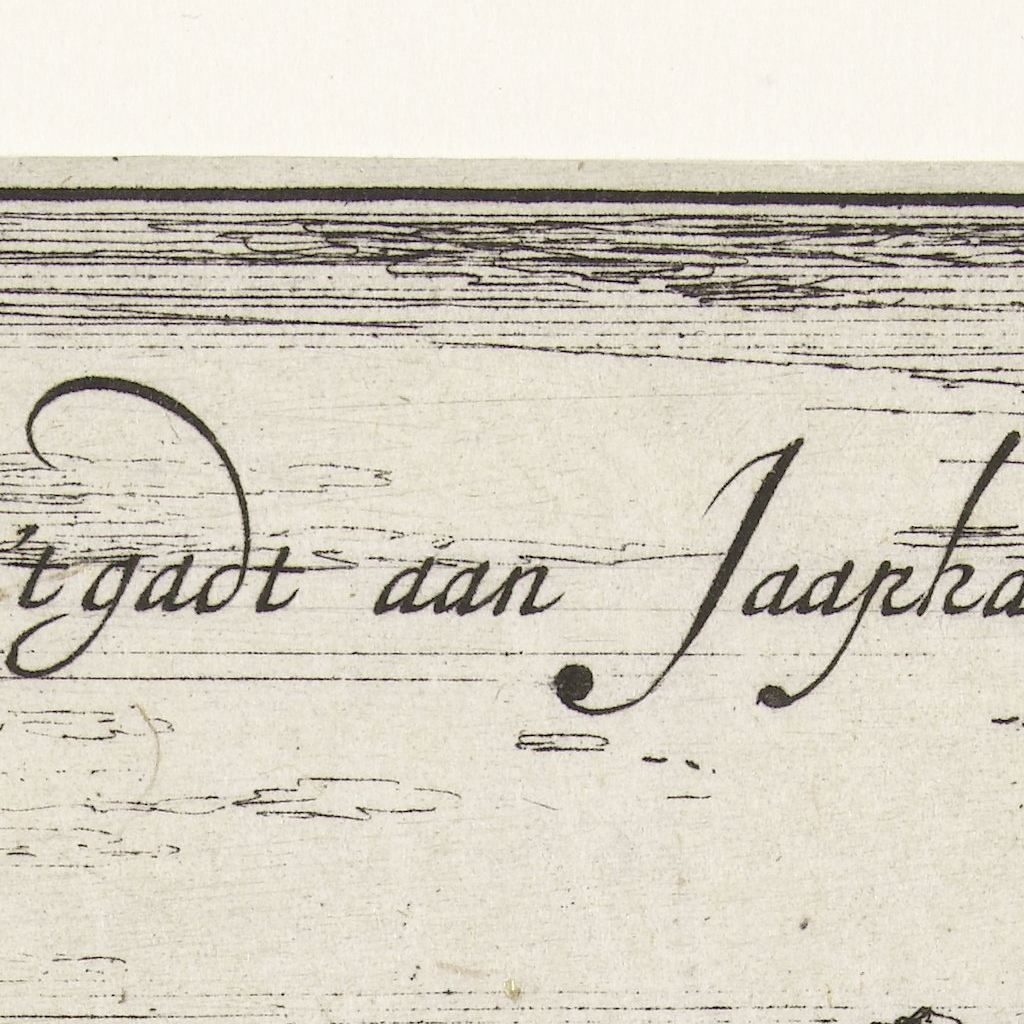 't gadt aan Jaapha